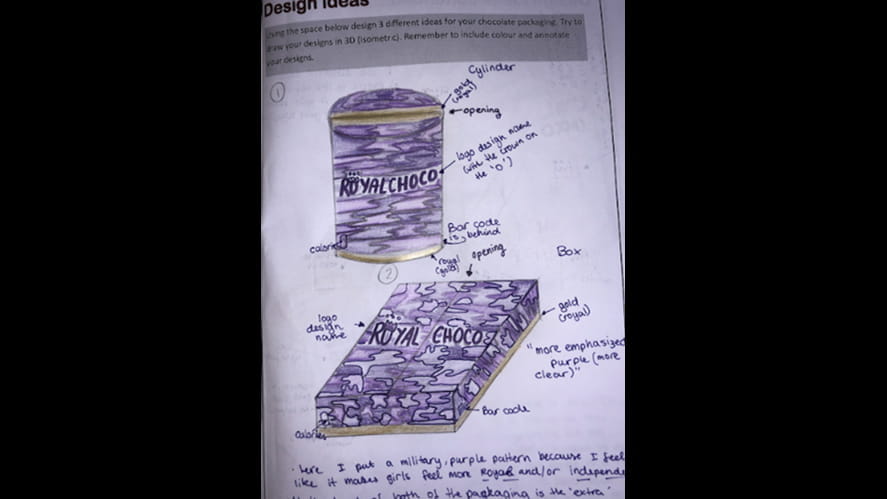 Design Ideas
Using the space below design 3 different ideas for your chocolate packaging. Try to
draw your designs in 3D (isometric). Remember to include colour and annotate
your designs.
1
Cylinder
gold
(royal)
opening
logo design name
(with the crown on
the 'O')
ROYALCHOCO
Bar code
is behind
calories
royal
(gold)
opening
2
Box
logo
design
name
gold
(royal)
ROYAL CHOCO
"more emphasized
purple (more
clear)"
Bar code
calories
. here I put a military, purple pattern because I feel
like it makes girls feel more Royal and/or independ
both of the packaging is the 'extra'